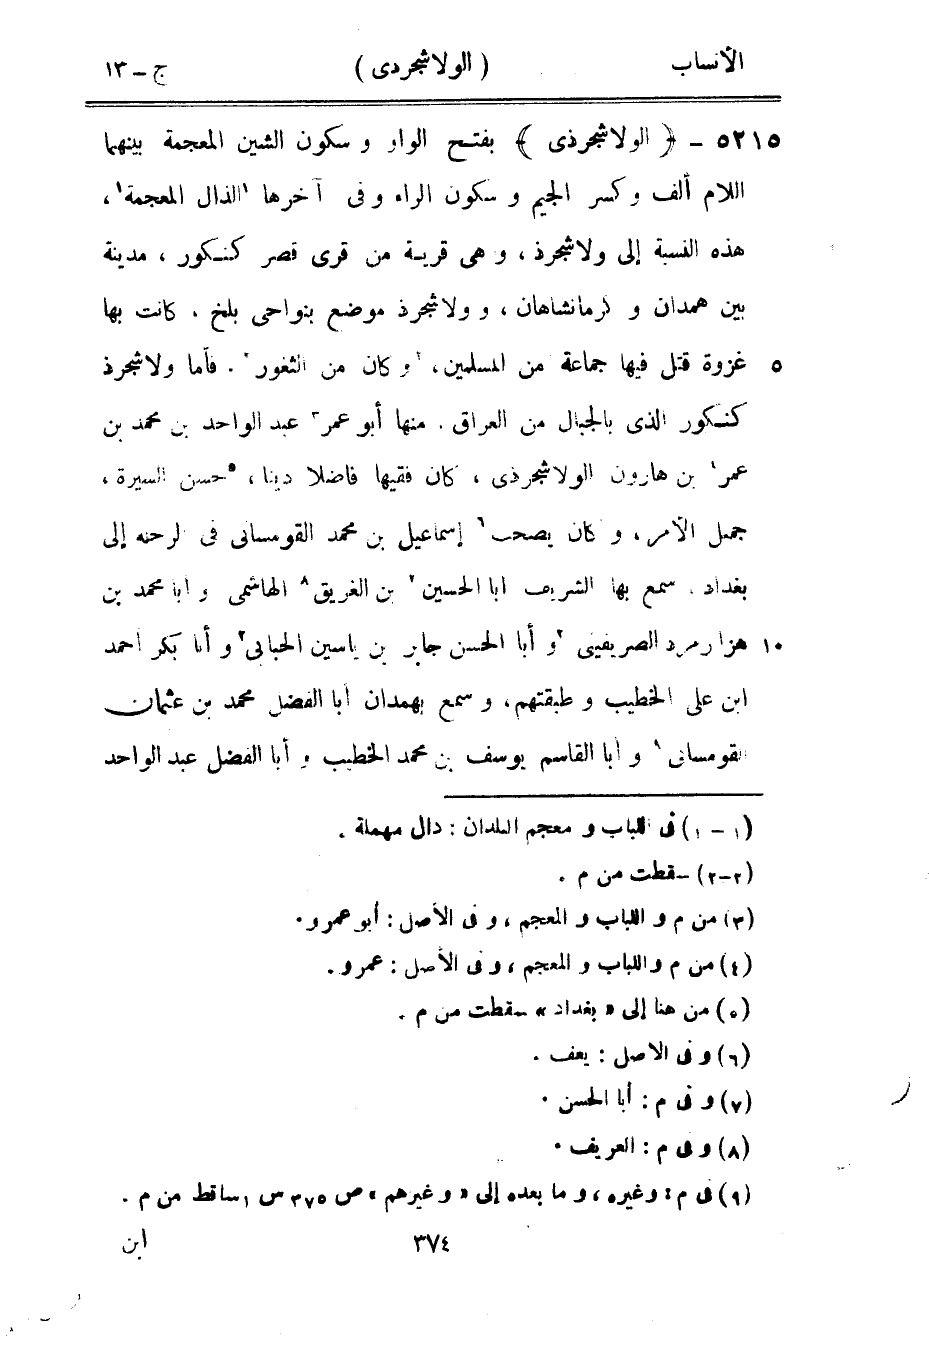 الأنساب ( الولاشجردى ) ج - ١٣
٥٢١٥ - ﴿ الولاشجرذى ﴾ بفتح الواو و سكون الشين المعجمة بينهما
اللام ألف و كسر الجيم و سكون الراء و فى آخرها ١الذال المعجمة١ ،
هذه النسبة إلى ولاشجرذ ، و هى قرية من قرى قصر كنكور ، مدينة
بين همدان و كرمانشاهان ، و ولاشجرذ موضع بنواحى بلخ . كانت بها
٥ غزوة قتل فيها جماعة من المسلمين، ٢و كان من الثغور٢ . فأما ولاشجرذ
كنكور الذى بالجبال من العراق . منها أبو عمر٣ عبد الواحد بن محمد بن
عمر٤ بن هارون الولاشجرذى ، كان فقيها فاضلا دينا ، ٥حسن السيرة ،
جميل الأمر ، و كان يصحب٦ إسماعيل بن محمد القومسانى فى الرحلة إلى
بغداد . سمع بها الشريف أبا الحسين٧ بن الغريق٨ الهاشمى و أبا محمد بن
١٠ هزارمرد الصريفينى ٩و أبا الحسن جابر بن ياسين الحبائى٩ و أبا بكر أحمد
ابن على الخطيب و طبقتهم، و سمع بهمدان أبا الفضل محمد بن عثمان
القومسانى و أبا القاسم يوسف بن محمد الخطيب و أبا الفضل عبد الواحد
(١ - ١) فى اللباب و معجم البلدان : دال مهملة .
(٢-٢) سقطت من م .
(٣) من م و اللباب و المعجم ، و فى الأصل : أبو عمرو .
(٤) من م و اللباب و المعجم ، و فى الأصل : عمرو .
(٥) من هنا إلى « بغداد » سقطت من م .
(٦) و فى الأصل : يعف .
(٧) و فى م : أبا الحسن .
(٨) و فى م : العريف .
(٩) فى م : وغيره ، و ما بعده إلى « و غيرهم » ص ٣٧٥ س ١ ساقط من م .
٣٧٤ ابن